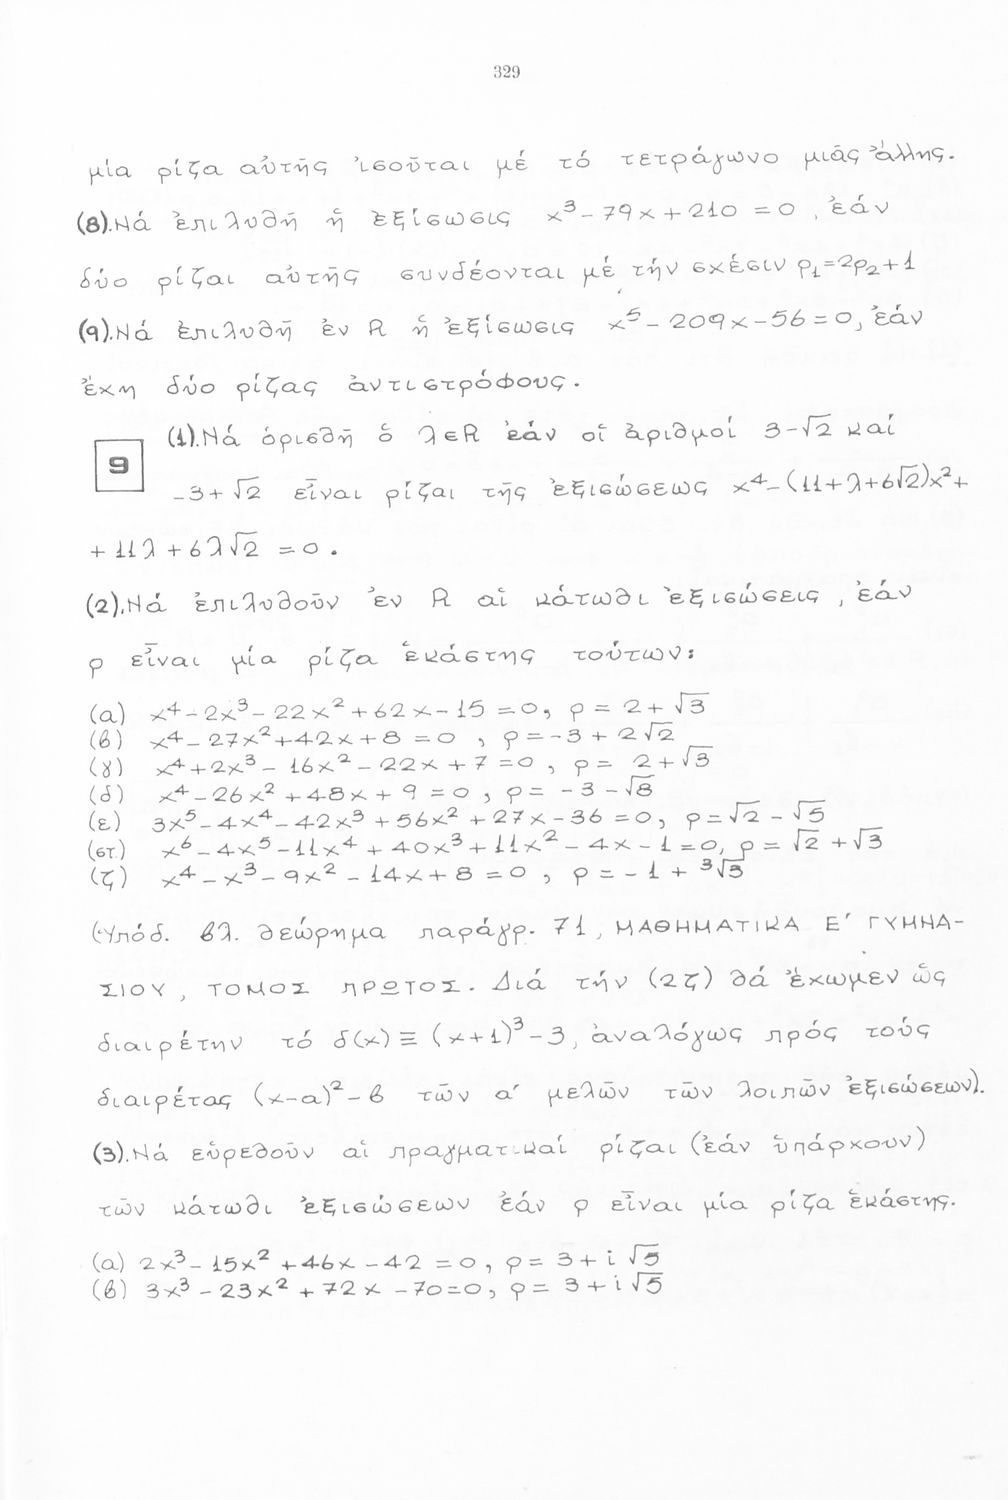 329
μία ρίζα αὐτῆς ἰσοῦται μέ τό τετράγωνο μιᾶς ἄλλης.
(8).Νά ἐπιλυθῆ ἡ ἐξίσωσις x³-79x+210=0, ἐάν
δύο ρίζαι αὐτῆς συνδέονται μέ τήν σχέσιν ρ₁=2ρ₂+1
(9).Νά ἐπιλυθῆ ἐν R ἡ ἐξίσωσις x⁵-209x-56=0, ἐάν
ἔχη δύο ρίζας ἀντιστρόφους.
9 (1).Νά ὁρισθῆ ὁ λ∈R ἐάν οἱ ἀριθμοί 3-√2 καί
-3+√2 εἶναι ρίζαι τῆς ἐξισώσεως x⁴-(11+λ+6√2)x²+
+11λ+6λ√2 =0.
(2).Νά ἐπιλυθοῦν ἐν R αἱ κάτωθι ἐξισώσεις, ἐάν
ρ εἶναι μία ρίζα ἑκάστης τούτων:
(α) x⁴-2x³-22x²+62x-15=0, ρ=2+√3
(β) x⁴-27x²+42x+8=0, ρ=-3+2√2
(γ) x⁴+2x³-16x²-22x+7=0, ρ=2+√3
(δ) x⁴-26x²+48x+9=0, ρ=-3-√8
(ε) 3x⁵-4x⁴-42x³+56x²+27x-36=0, ρ=√2-√5
(στ) x⁶-4x⁵-11x⁴+40x³+11x²-4x-1=0, ρ=√2+√3
(ζ) x⁴-x³-9x²-14x+8=0, ρ=-1+³√3
(Ὑπόδ. βλ. θεώρημα παράγρ. 71, ΜΑΘΗΜΑΤΙΚΑ Ε΄ ΓΥΜΝΑ-
ΣΙΟΥ, ΤΟΜΟΣ ΠΡΩΤΟΣ. Διά τήν (2ζ) θά ἔχωμεν ὡς
διαιρέτην τό δ(x)≡(x+1)³-3, ἀναλόγως πρός τούς
διαιρέτας (x-α)²-β τῶν α΄ μελῶν τῶν λοιπῶν ἐξισώσεων).
(3).Νά εὑρεθοῦν αἱ πραγματικαί ρίζαι (ἐάν ὑπάρχουν)
τῶν κάτωθι ἐξισώσεων ἐάν ρ εἶναι μία ρίζα ἑκάστης.
(α) 2x³-15x²+46x-42=0, ρ=3+i√5
(β) 3x³-23x²+72x-70=0, ρ=3+i√5